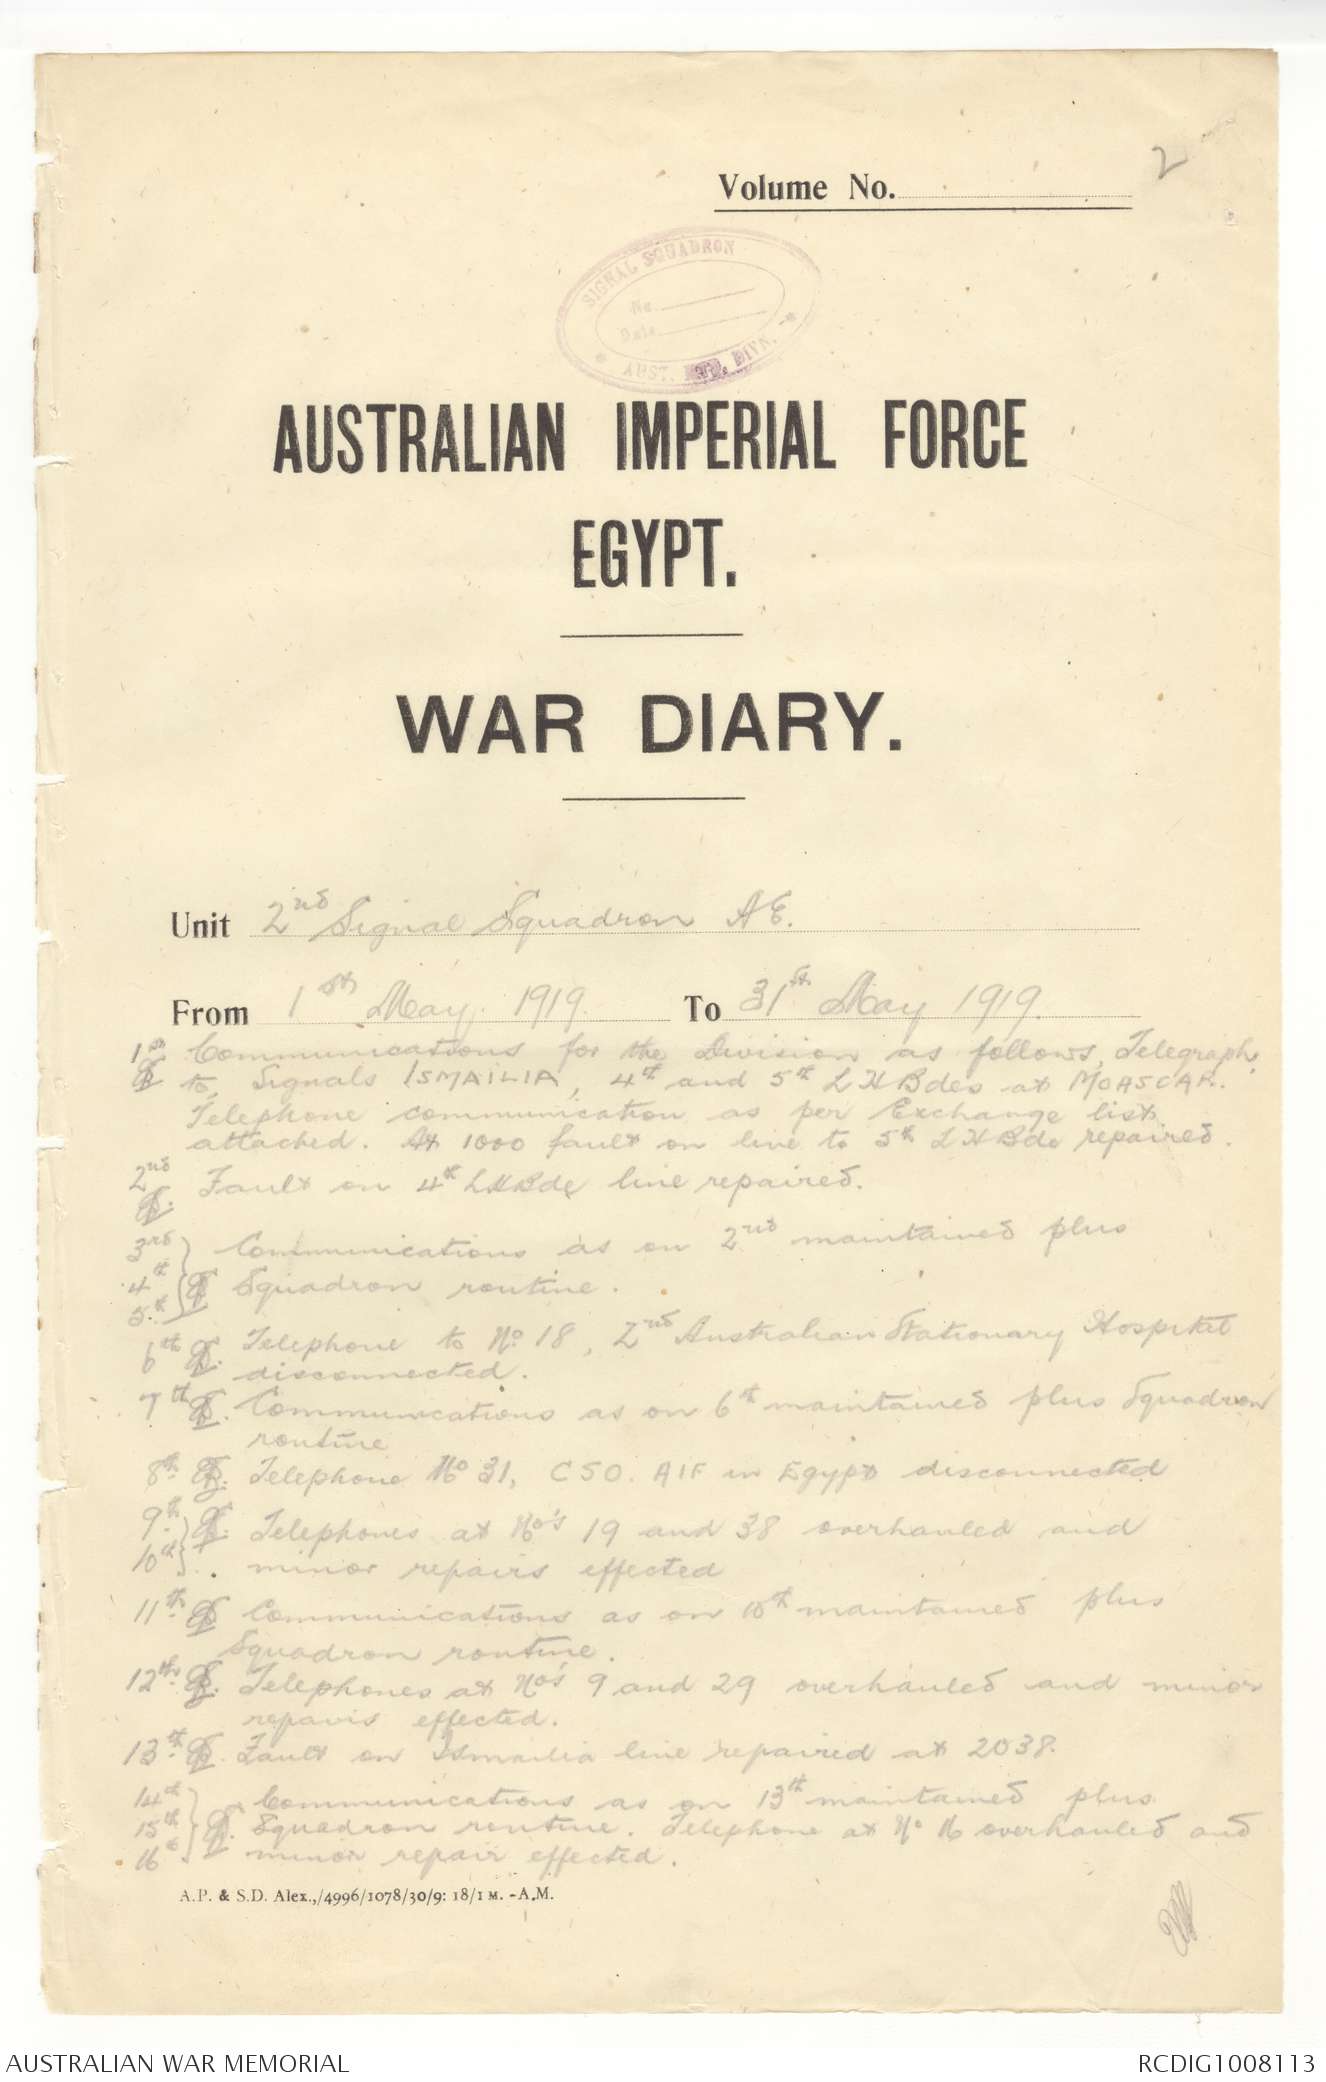 2
Volume No.
SIGNAL SQUADRON
No.
Date
AUST. DIVN.
AUSTRALIAN IMPERIAL FORCE
EGYPT.
WAR DIARY.
Unit 2nd Signal Squadron A E.
From 1st May. 1919. To 31st May 1919.
1st Communications for the Division as follows, Telegraph
to Signals ISMAILIA, 4th and 5th L H Bdes at MOASCAR.
Telephone communication as per Exchange list
attached. At 1000 fault on line to 5th L H Bde repaired.
2nd Fault on 4th LHBde line repaired.
3rd } Communications as on 2nd maintained plus
4th } Squadron routine.
5th }
6th Telephone to No. 18, 2nd Australian Stationary Hospital
disconnected.
7th Communications as on 6th maintained plus Squadron
routine
8th Telephone No 31, CSO. AIF in Egypt disconnected
9th } Telephones at No's 19 and 38 overhauled and
10th } minor repairs effected
11th Communications as on 10th maintained plus
Squadron routine.
12th Telephones at No's 9 and 29 overhauled and minor
repairs effected.
13th Fault on Ismailia line repaired at 2038.
14th } Communications as on 13th maintained plus
15th } Squadron routine. Telephone at No 16 overhauled and
16th } minor repair effected.
A.P. & S.D. Alex.,/4996/1078/30/9: 18/1 M. -A.M.
AUSTRALIAN WAR MEMORIAL
RCDIG1008113